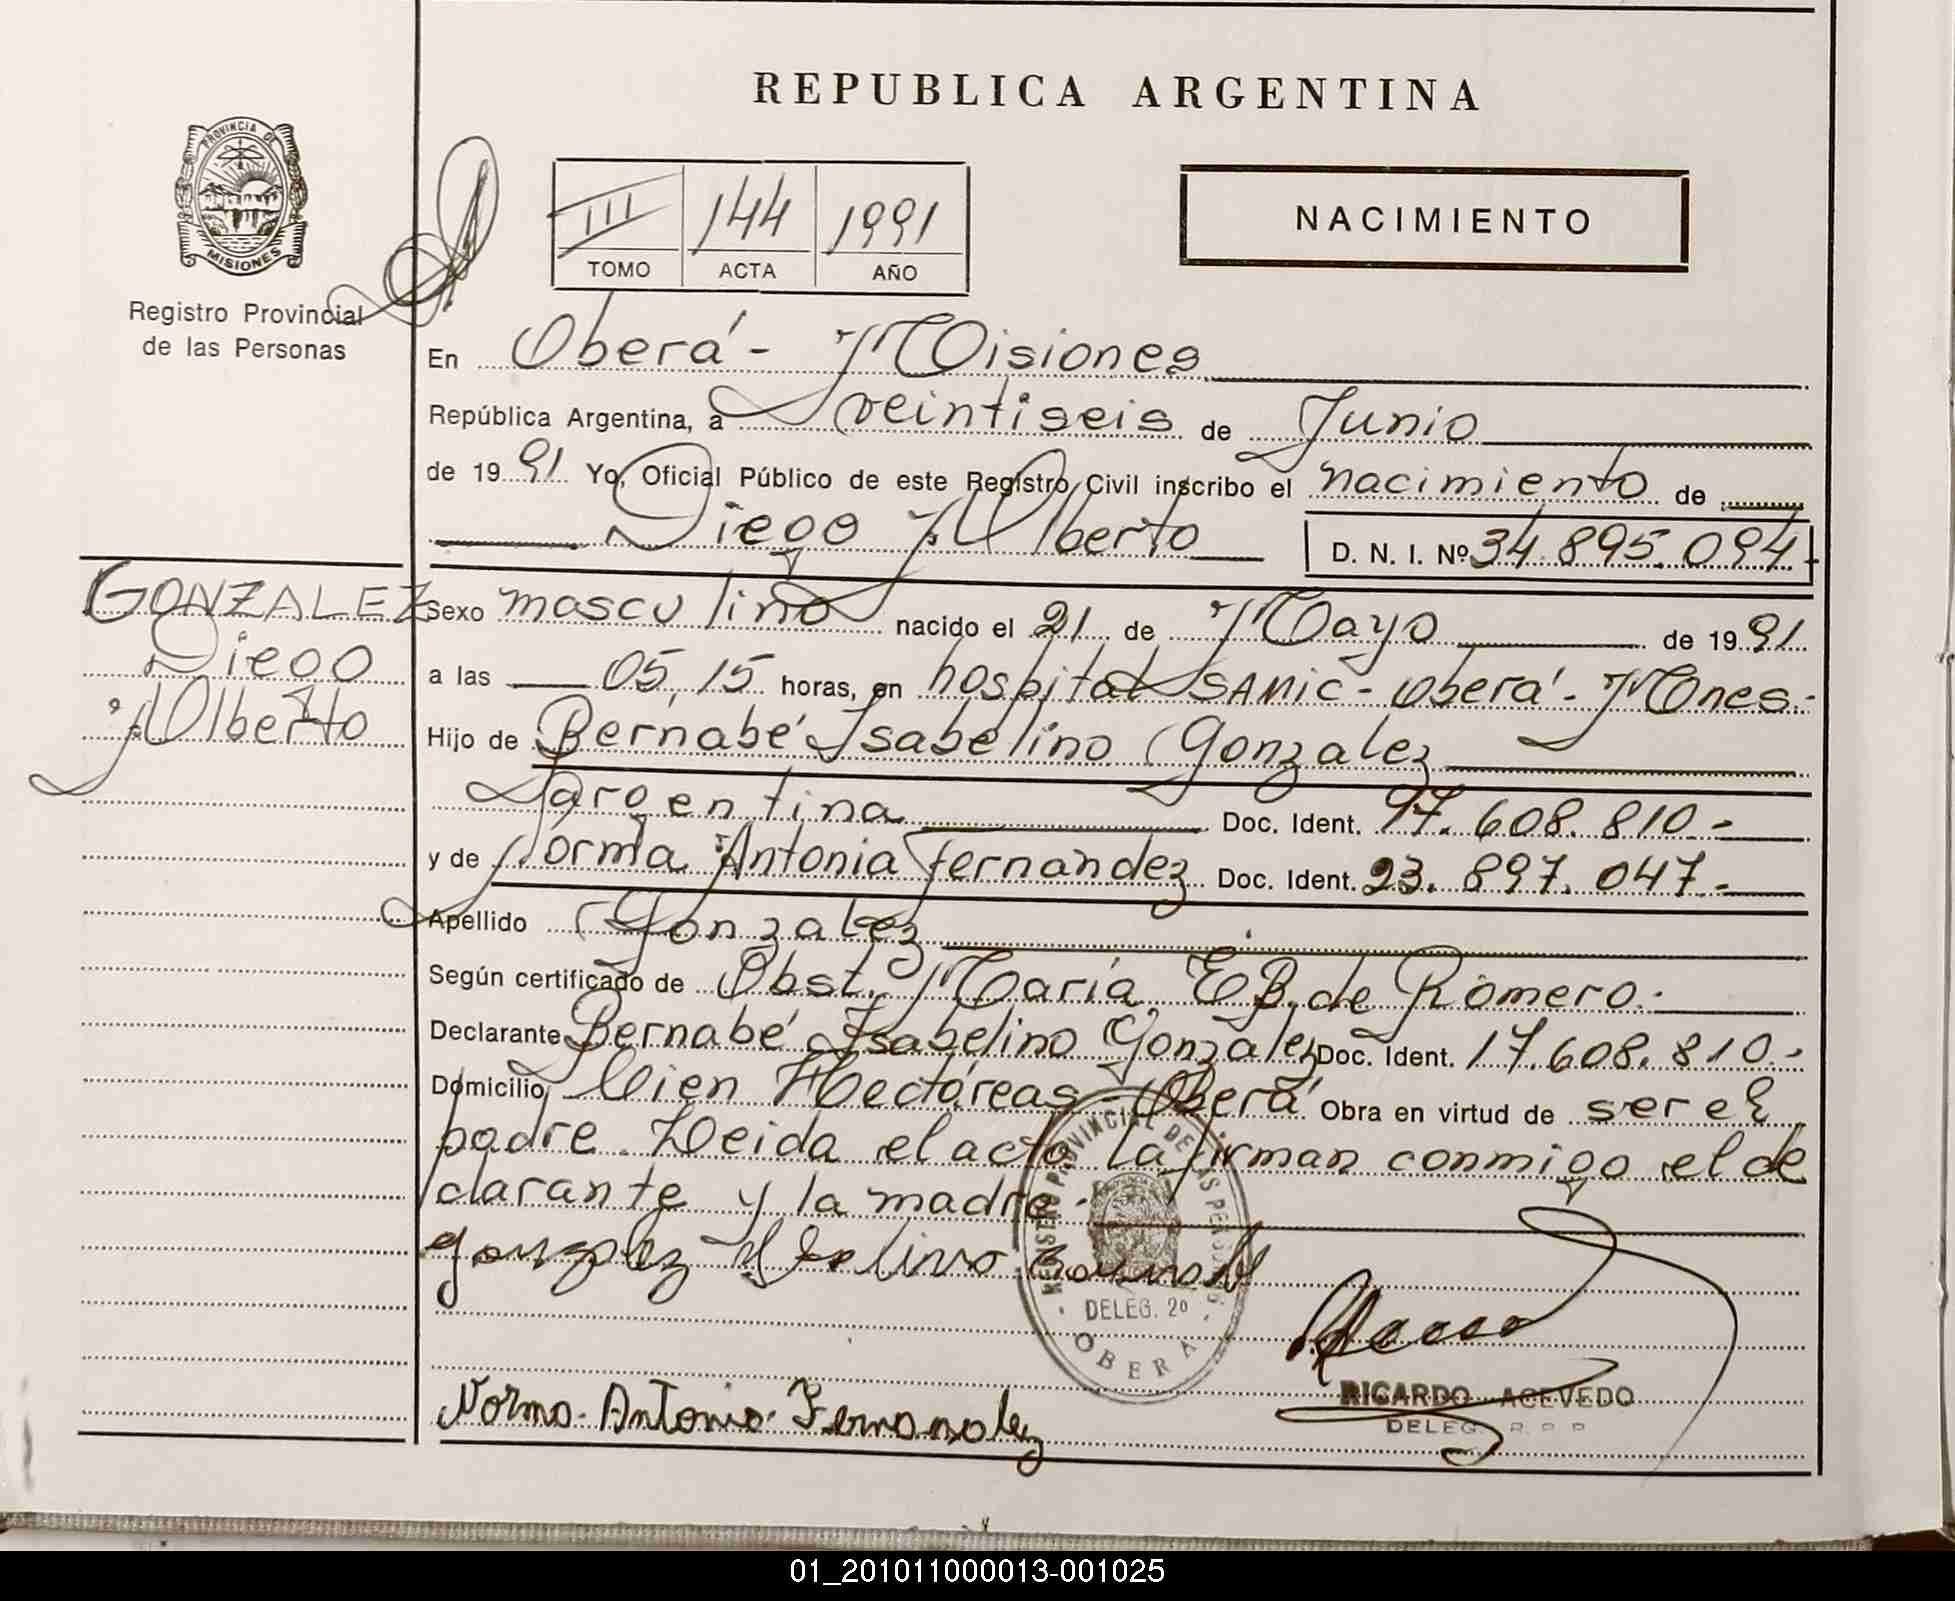 REPUBLICA ARGENTINA
PROVINCIA DE
MISIONES
Registro Provincial
de las Personas
III 144 1991
TOMO ACTA AÑO
NACIMIENTO
En Oberá - Misiones
República Argentina, a veintiseis de Junio
de 1991 Yo, Oficial Público de este Registro Civil inscribo el nacimiento de
Diego Alberto D. N. I. Nº 34.895.094
GONZALEZ
Diego
Alberto
Sexo masculino nacido el 21 de Mayo de 1991
a las 05,15 horas, en hospital SAMIC - Oberá - Mones.-
Hijo de Bernabé Isabelino Gonzalez
argentina Doc. Ident. 17.608.810.-
y de Norma Antonia Fernández Doc. Ident. 23.897.047.-
Apellido Gonzalez
Según certificado de Obst. María E B. de Romero.-
Declarante Bernabé Isabelino Gonzalez Doc. Ident. 17.608.810.-
Domicilio Cien Hectáreas - Oberá Obra en virtud de ser el
padre. Leida el acta, la firman conmigo el de
clarante y la madre.-
REGISTRO PROVINCIAL DE LAS PERSONAS
DELEG. 20
OBERA
Norma Antonia Fernandez
RICARDO ACEVEDO
DELEG. R. P. P.
01_201011000013-001025